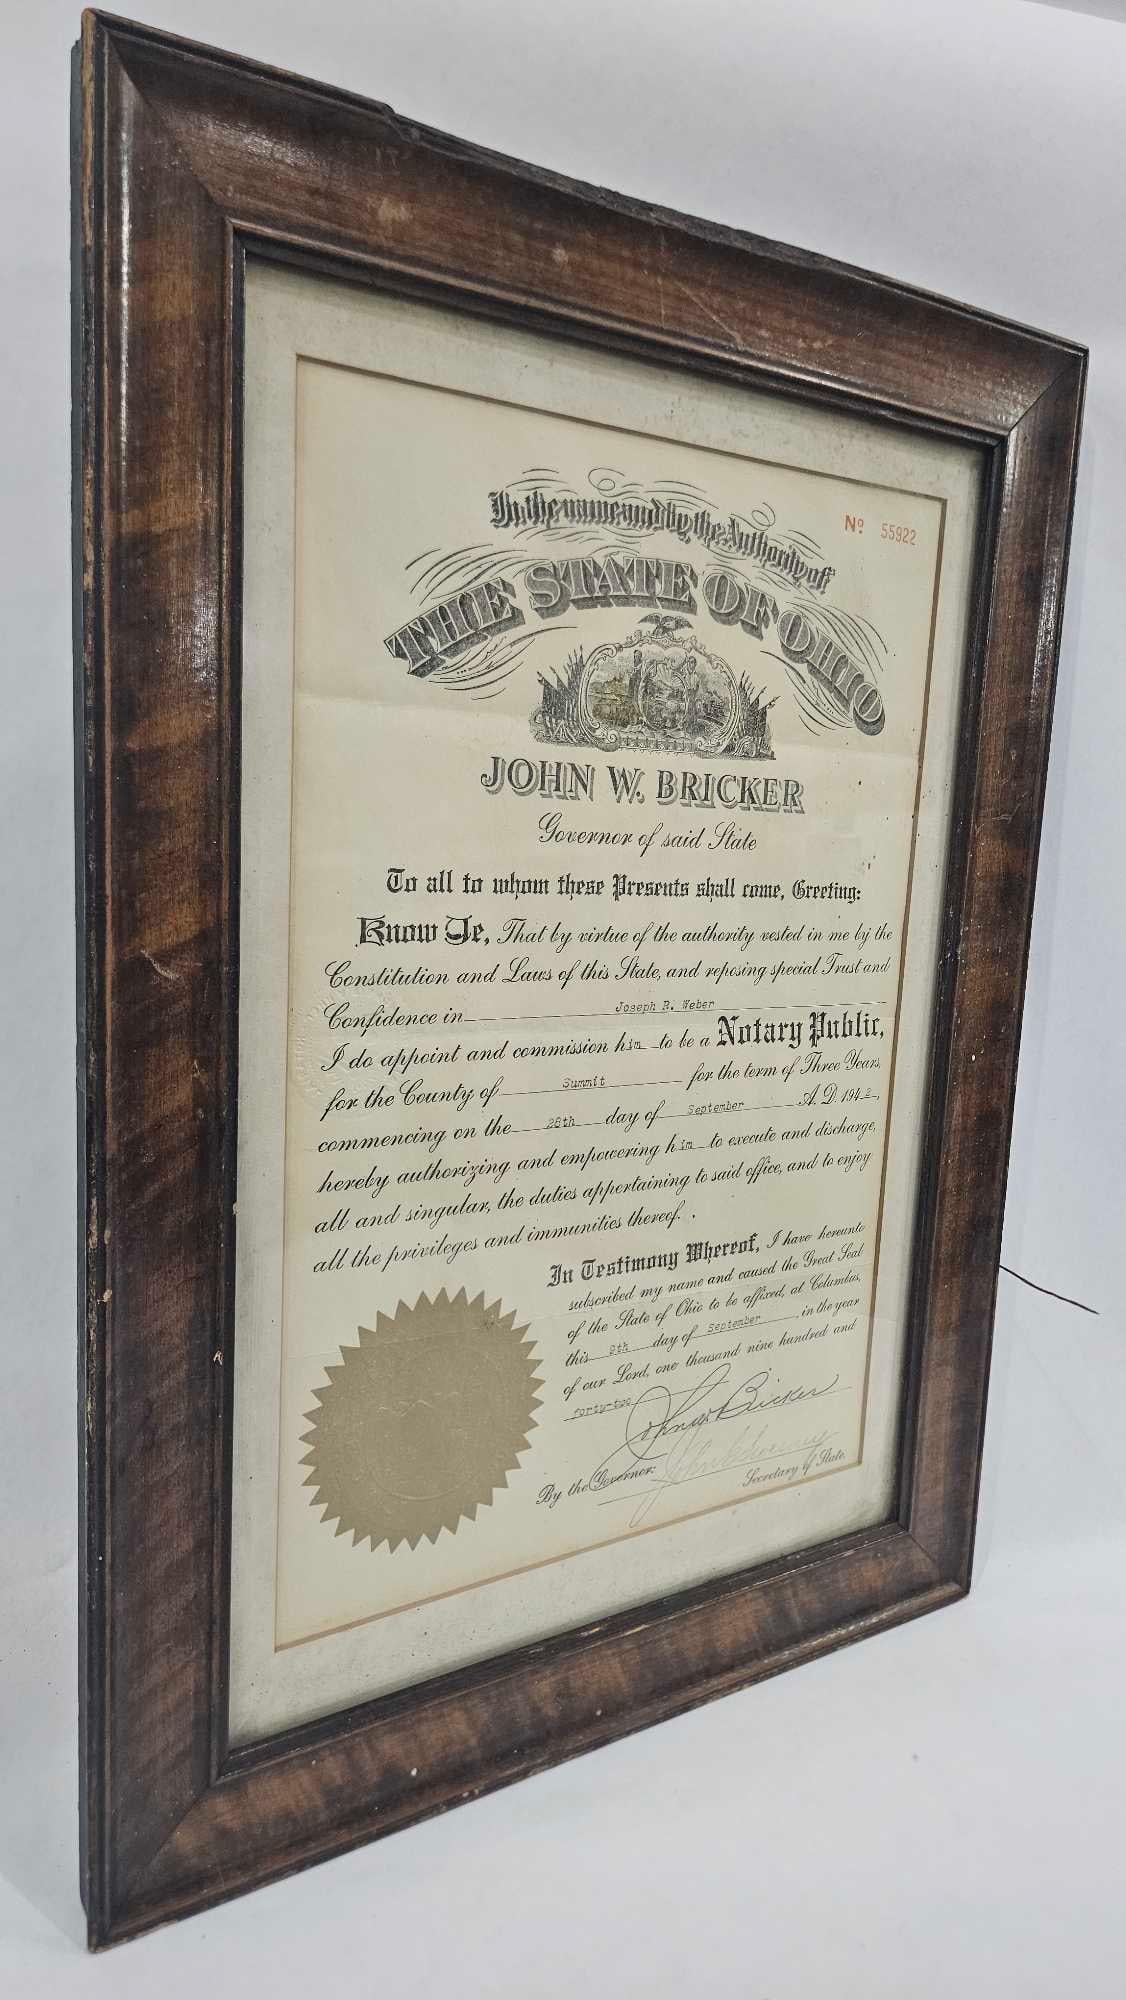 In the name and by the Authority of
Nº 55922
THE STATE OF OHIO
JOHN W. BRICKER
Governor of said State
To all to whom these Presents shall come, Greeting:
Know Ye, That by virtue of the authority vested in me by the
Constitution and Laws of this State, and reposing special Trust and
Confidence in Joseph R. Weber
I do appoint and commission him to be a Notary Public,
for the County of Summit for the term of Three Years,
commencing on the 28th day of September A. D. 1942,
hereby authorizing and empowering him to execute and discharge,
all and singular, the duties appertaining to said office, and to enjoy
all the privileges and immunities thereof.
In Testimony Whereof, I have hereunto
subscribed my name and caused the Great Seal
of the State of Ohio to be affixed, at Columbus,
this 9th day of September, in the year
of our Lord, one thousand nine hundred and
forty-two
John W Bricker
By the Governor: John Sweeney
Secretary of State.